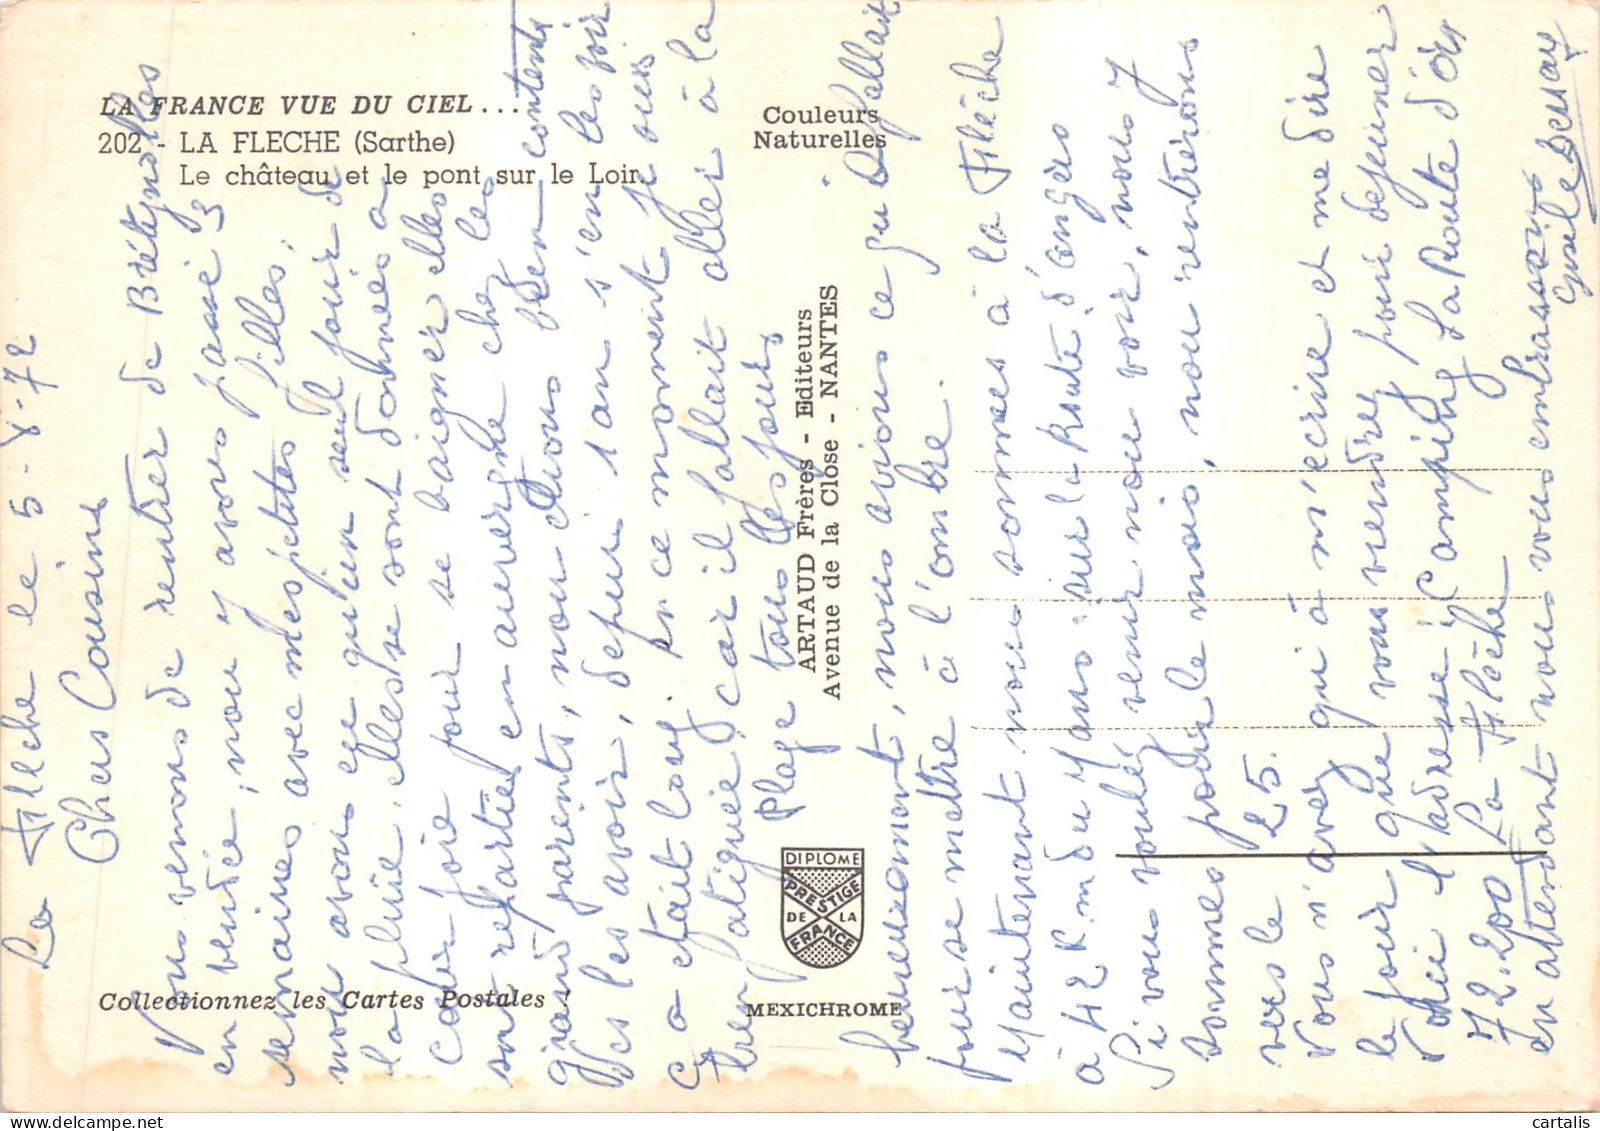 LA FRANCE VUE DU CIEL...
202 - LA FLECHE (Sarthe)
Le château et le pont sur le Loir
Couleurs
Naturelles
ARTAUD Frères - Editeurs
Avenue de la Close - NANTES
DIPLOME
PRESTIGE
DE LA
FRANCE
Collectionnez les Cartes Postales !
MEXICHROME
La Flèche le 5-8-72
Chers Cousins
Nous venons de rentrer de Brétignolles
en vendée, nous y avons passé 3
semaines avec mes petites filles,
nous avons eue qu'un seul jour de
la pluie, elles se sont données à
cœur joie pour se baigner elles
sont reparties en auvergne chez les
grand parents, nous étions bien contents
de les avoir, depuis 1 an s'en les voir
ça était long, en ce moment je suis
bien fatiguée, car il fallait aller à la
Plage tous les jours
heureusement, nous avions ce qu'il fallait
pour se mettre à l'ombre.
Maintenant nous sommes à la Flèche
à 42 Km du Mans sur la Route d'angers
Si vous voulez venir nous voir, nous y
sommes jusque le mois, nous rentrerons
vers le 25.
Vous n'avez qu'à m'écrire et me dire
le jour que vous viendrez pour dejeuner
Voici l'adresse: Camping La Route d'or
72.200 La Flèche
en attendant nous vous embrassons
Gisele